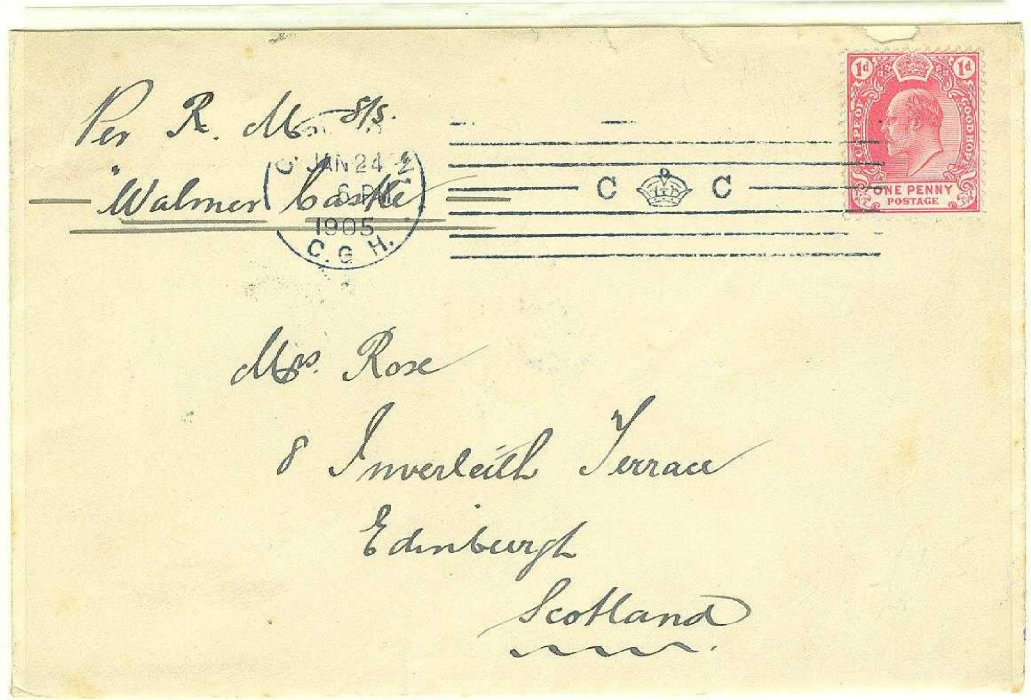 Per R. M. S/S.
"Walmer Castle"
JAN 24
6 PM
1905
C. G. H.
C C
1d 1d
CAPE OF GOOD HOPE
ONE PENNY
POSTAGE
Mrs. Rose
8 Inverleith Terrace
Edinburgh
Scotland